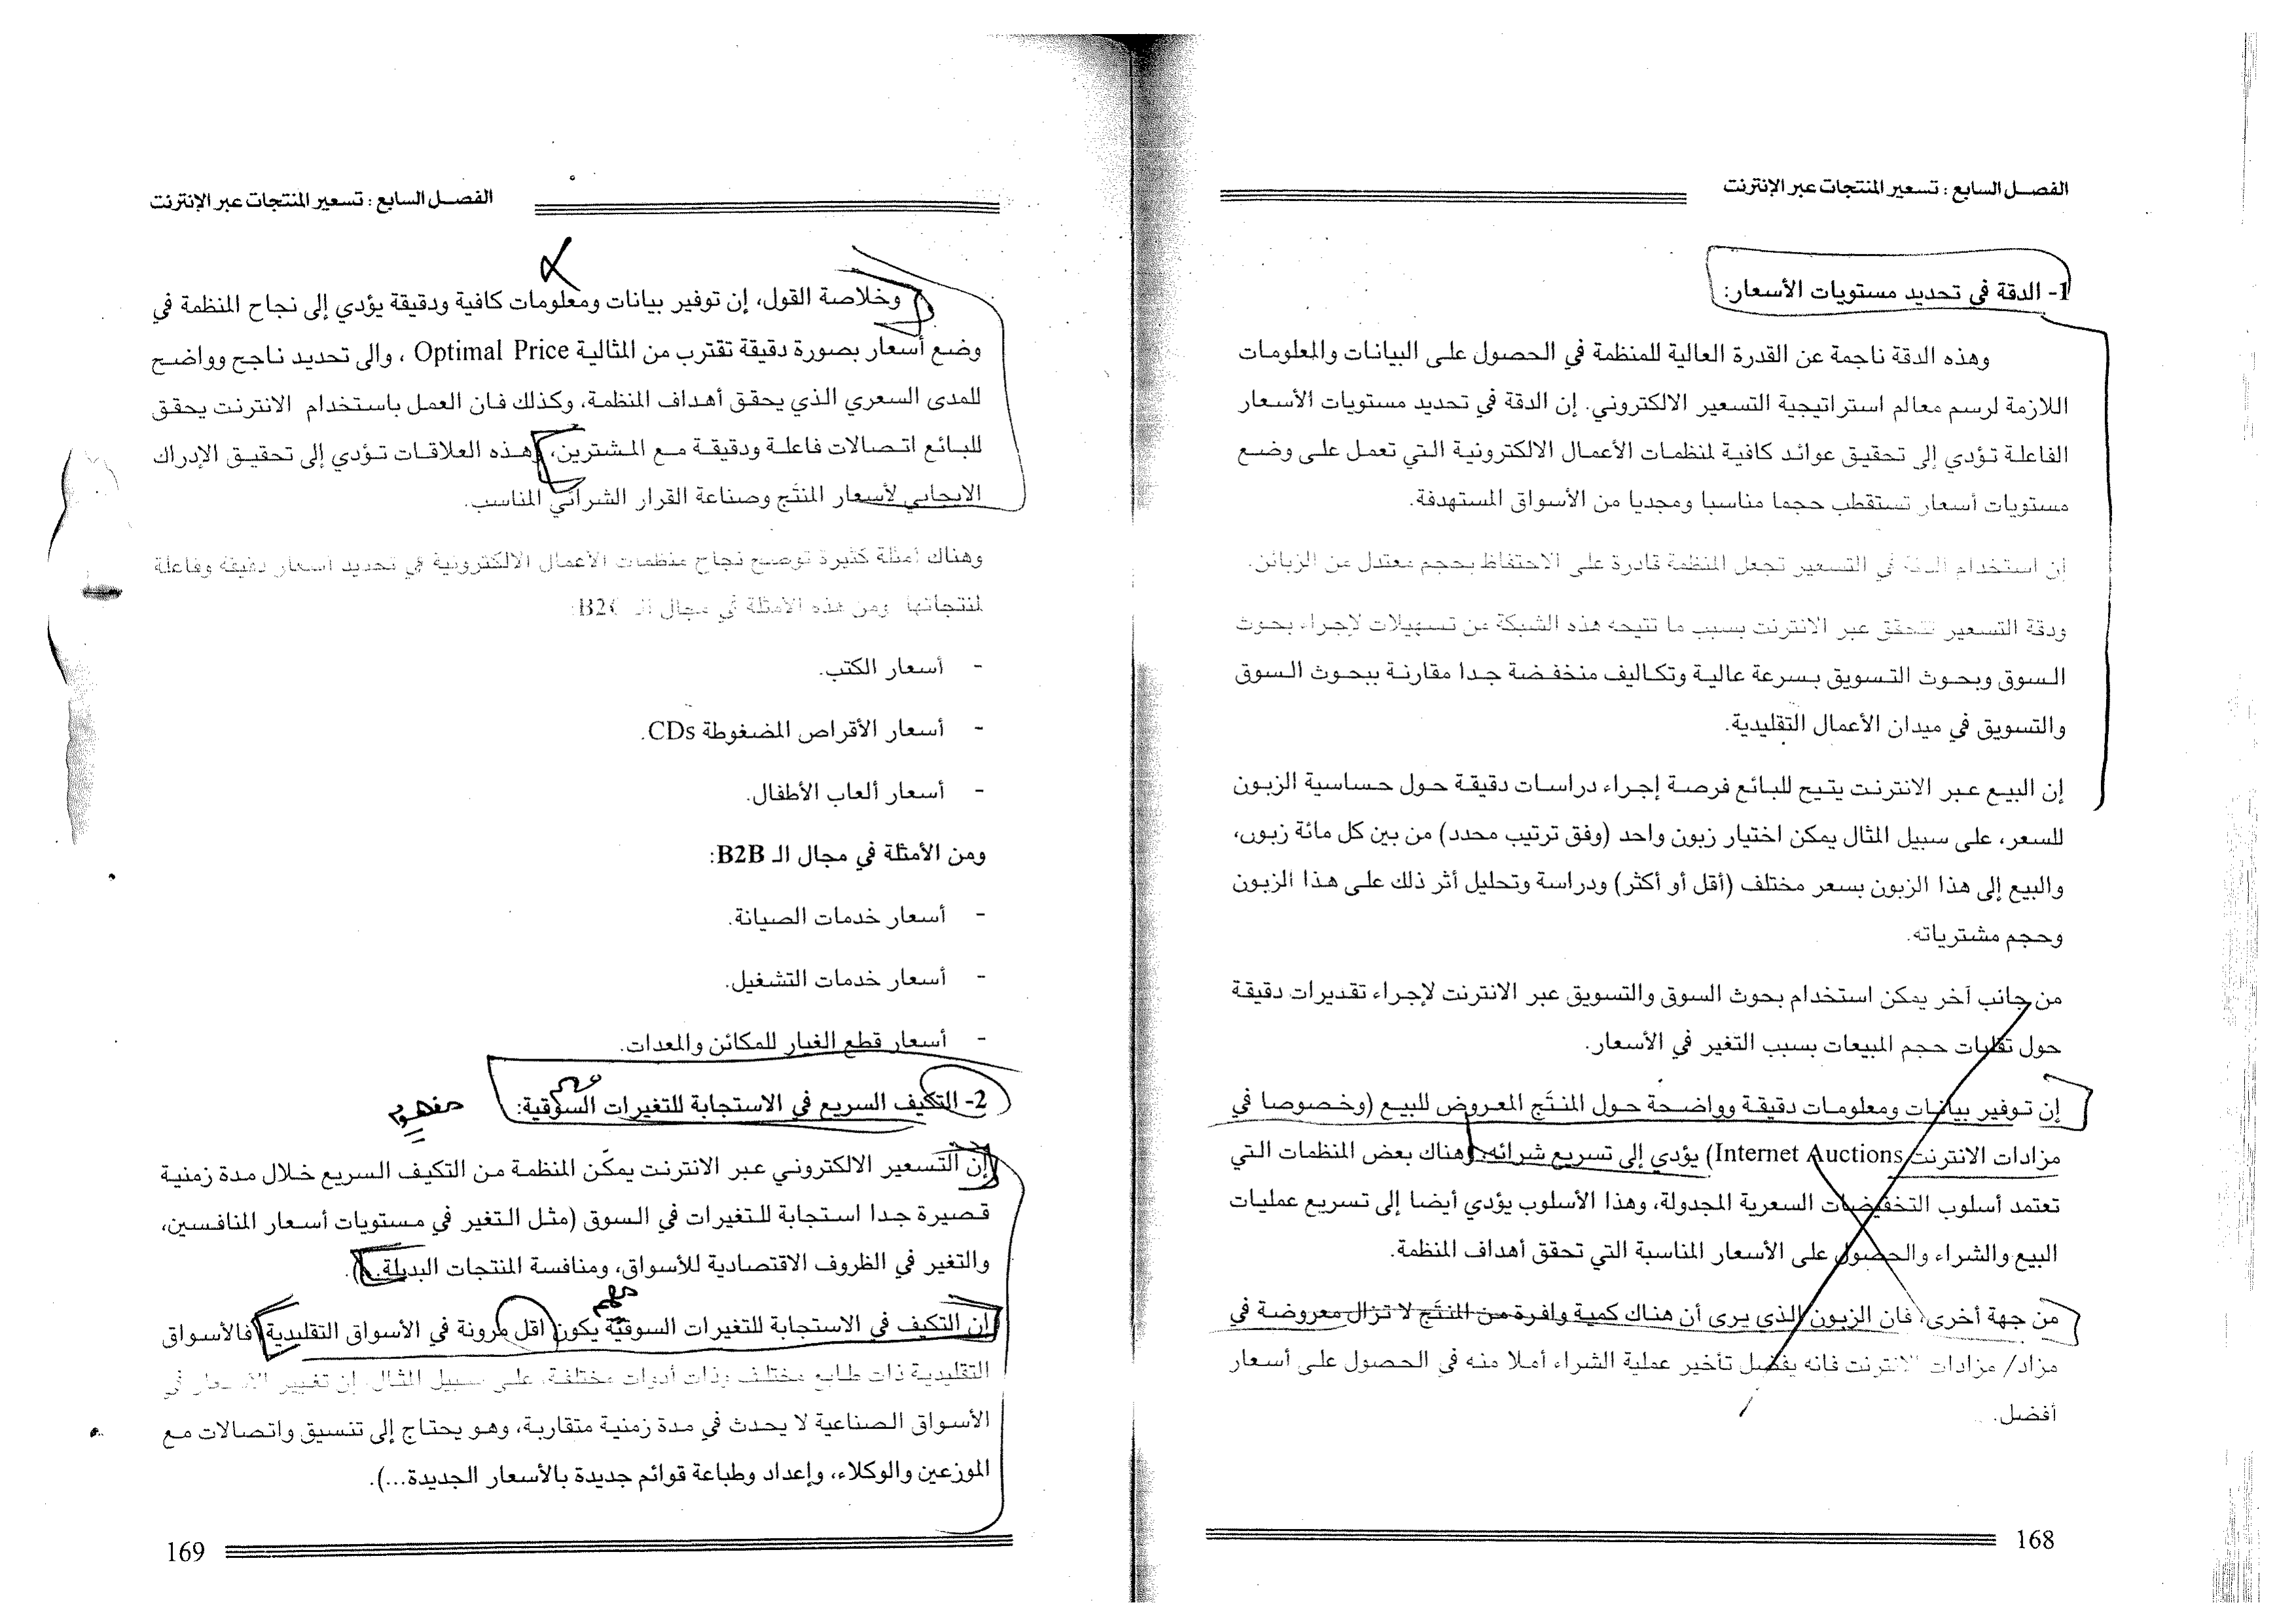 الفصل السابع : تسعير المنتجات عبر الإنترنت
1- الدقة في تحديد مستويات الأسعار:
وهذه الدقة ناجمة عن القدرة العالية للمنظمة في الحصول على البيانات والمعلومات
اللازمة لرسم معالم استراتيجية التسعير الالكتروني. إن الدقة في تحديد مستويات الأسعار
الفاعلة تؤدي إلى تحقيق عوائد كافية لمنظمات الأعمال الالكترونية التي تعمل على وضع
مستويات أسعار تستقطب حجما مناسبا ومجديا من الأسواق المستهدفة.
إن استخدام الدقة في التسعير تجعل المنظمة قادرة على الاحتفاظ بحجم معتدل من الزبائن.
ودقة التسعير تتحقق عبر الانترنت بسبب ما تتيحه هذه الشبكة من تسهيلات لإجراء بحوث
السوق وبحوث التسويق بسرعة عالية وتكاليف منخفضة جدا مقارنة ببحوث السوق
والتسويق في ميدان الأعمال التقليدية.
إن البيع عبر الانترنت يتيح للبائع فرصة إجراء دراسات دقيقة حول حساسية الزبون
للسعر، على سبيل المثال يمكن اختيار زبون واحد (وفق ترتيب محدد) من بين كل مائة زبون،
والبيع إلى هذا الزبون بسعر مختلف (أقل أو أكثر) ودراسة وتحليل أثر ذلك على هذا الزبون
وحجم مشترياته.
من جانب آخر يمكن استخدام بحوث السوق والتسويق عبر الانترنت لإجراء تقديرات دقيقة
حول تقلبات حجم المبيعات بسبب التغير في الأسعار.
إن توفير بيانات ومعلومات دقيقة وواضحة حول المنتَج المعروض للبيع (وخصوصا في
مزادات الانترنت Internet Auctions) يؤدي إلى تسريع شرائه. وهناك بعض المنظمات التي
تعتمد أسلوب التخفيضات السعرية المجدولة، وهذا الأسلوب يؤدي أيضا إلى تسريع عمليات
البيع والشراء والحصول على الأسعار المناسبة التي تحقق أهداف المنظمة.
من جهة أخرى، فان الزبون الذي يرى أن هناك كمية وافرة من المنتَج لا تزال معروضة في
مزاد/ مزادات الانترنت فانه يفضل تأخير عملية الشراء أملا منه في الحصول على أسعار
أفضل.
168
الفصل السابع : تسعير المنتجات عبر الإنترنت
وخلاصة القول، إن توفير بيانات ومعلومات كافية ودقيقة يؤدي إلى نجاح المنظمة في
وضع أسعار بصورة دقيقة تقترب من المثالية Optimal Price ، والى تحديد ناجح وواضح
للمدى السعري الذي يحقق أهداف المنظمة، وكذلك فان العمل باستخدام الانترنت يحقق
للبائع اتصالات فاعلة ودقيقة مع المشترين، وهذه العلاقات تؤدي إلى تحقيق الإدراك
الايجابي لأسعار المنتَج وصناعة القرار الشرائي المناسب.
وهناك أمثلة كثيرة توضح نجاح منظمات الأعمال الالكترونية في تحديد أسعار دقيقة وفاعلة
لمنتجاتها ومن هذه الأمثلة في مجال الـ B2C:
- أسعار الكتب.
- أسعار الأقراص المضغوطة CDs.
- أسعار ألعاب الأطفال.
ومن الأمثلة في مجال الـ B2B:
- أسعار خدمات الصيانة.
- أسعار خدمات التشغيل.
- أسعار قطع الغيار للمكائن والمعدات.
2- التكيف السريع في الاستجابة للتغيرات السوقية:
مفهوم
إن التسعير الالكتروني عبر الانترنت يمكّن المنظمة من التكيف السريع خلال مدة زمنية
قصيرة جدا استجابة للتغيرات في السوق (مثل التغير في مستويات أسعار المنافسين،
والتغير في الظروف الاقتصادية للأسواق، ومنافسة المنتجات البديلة..).
إن التكيف في الاستجابة للتغيرات السوقية يكون أقل مرونة في الأسواق التقليدية فالأسواق
التقليدية ذات طابع مختلف وذات أدوات مختلفة، على سبيل المثال، إن تغيير الأسعار في
الأسواق الصناعية لا يحدث في مدة زمنية متقاربة، وهو يحتاج إلى تنسيق واتصالات مع
الموزعين والوكلاء، وإعداد وطباعة قوائم جديدة بالأسعار الجديدة...).
169